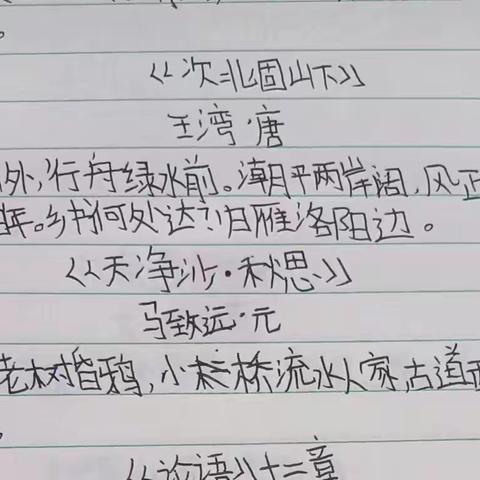 。
《次北固山下》
王湾·唐
外,行舟绿水前。潮平两岸阔,风正
年。乡书何处达?归雁洛阳边。
《天净沙·秋思》
马致远·元
老树昏鸦,小桥流水人家,古道西
。
《论语》十二章